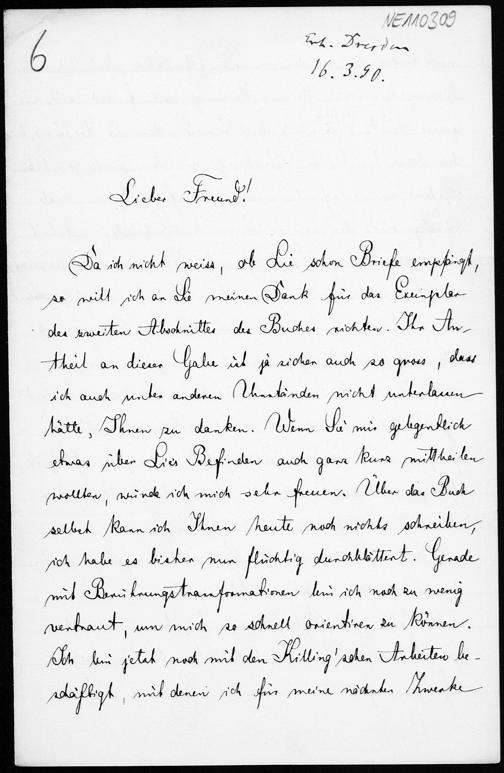 NE110309
6
Erh. Dresden
16.3.90.
Lieber Freund!
Da ich nicht weiss, ob Lie schon Briefe empfängt,
so will ich an Sie meinen Dank für das Exemplar
des zweiten Abschnittes des Buches richten. Ihr An-
theil an dieser Gabe ist ja sicher auch so gross, dass
ich auch unter anderen Umständen nicht unterlassen
hätte, Ihnen zu danken. Wenn Sie mir gelegentlich
etwas über Lies Befinden auch ganz kurz mittheilen
wollten, würde ich mich sehr freuen. Über das Buch
selbst kann ich Ihnen heute noch nichts schreiben,
ich habe es bisher nur flüchtig durchblättert. Gerade
mit Berührungstransformationen bin ich noch zu wenig
vertraut, um mich so schnell orientiren zu können.
Ich bin jetzt noch mit den Killing'schen Arbeiten be-
schäftigt, mit denen ich für meine nächsten Zwecke